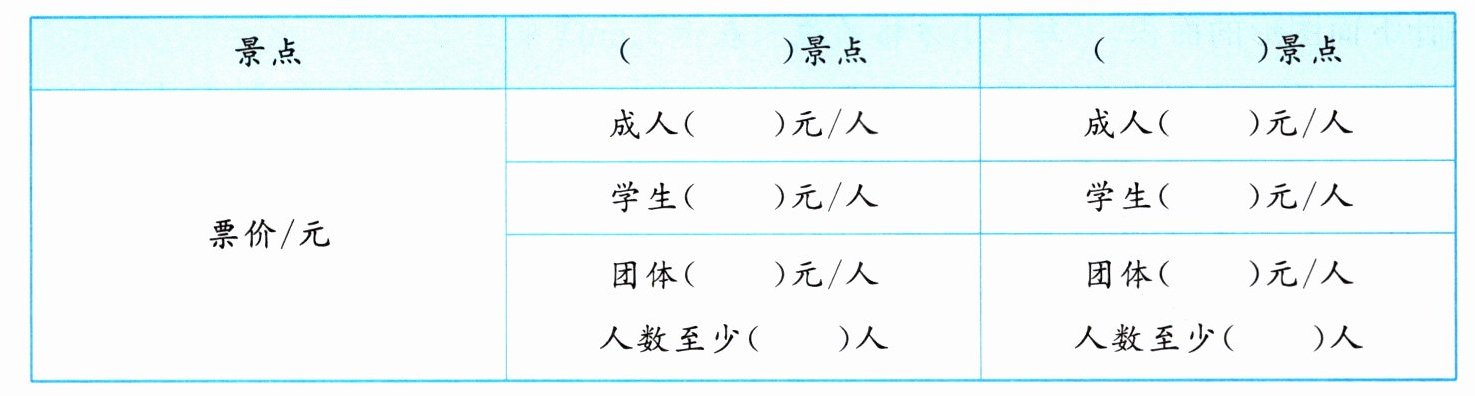 景点 (　　　)景点 (　　　)景点
票价/元
成人(　　)元/人 成人(　　)元/人
学生(　　)元/人 学生(　　)元/人
团体(　　)元/人 团体(　　)元/人
人数至少(　　)人 人数至少(　　)人